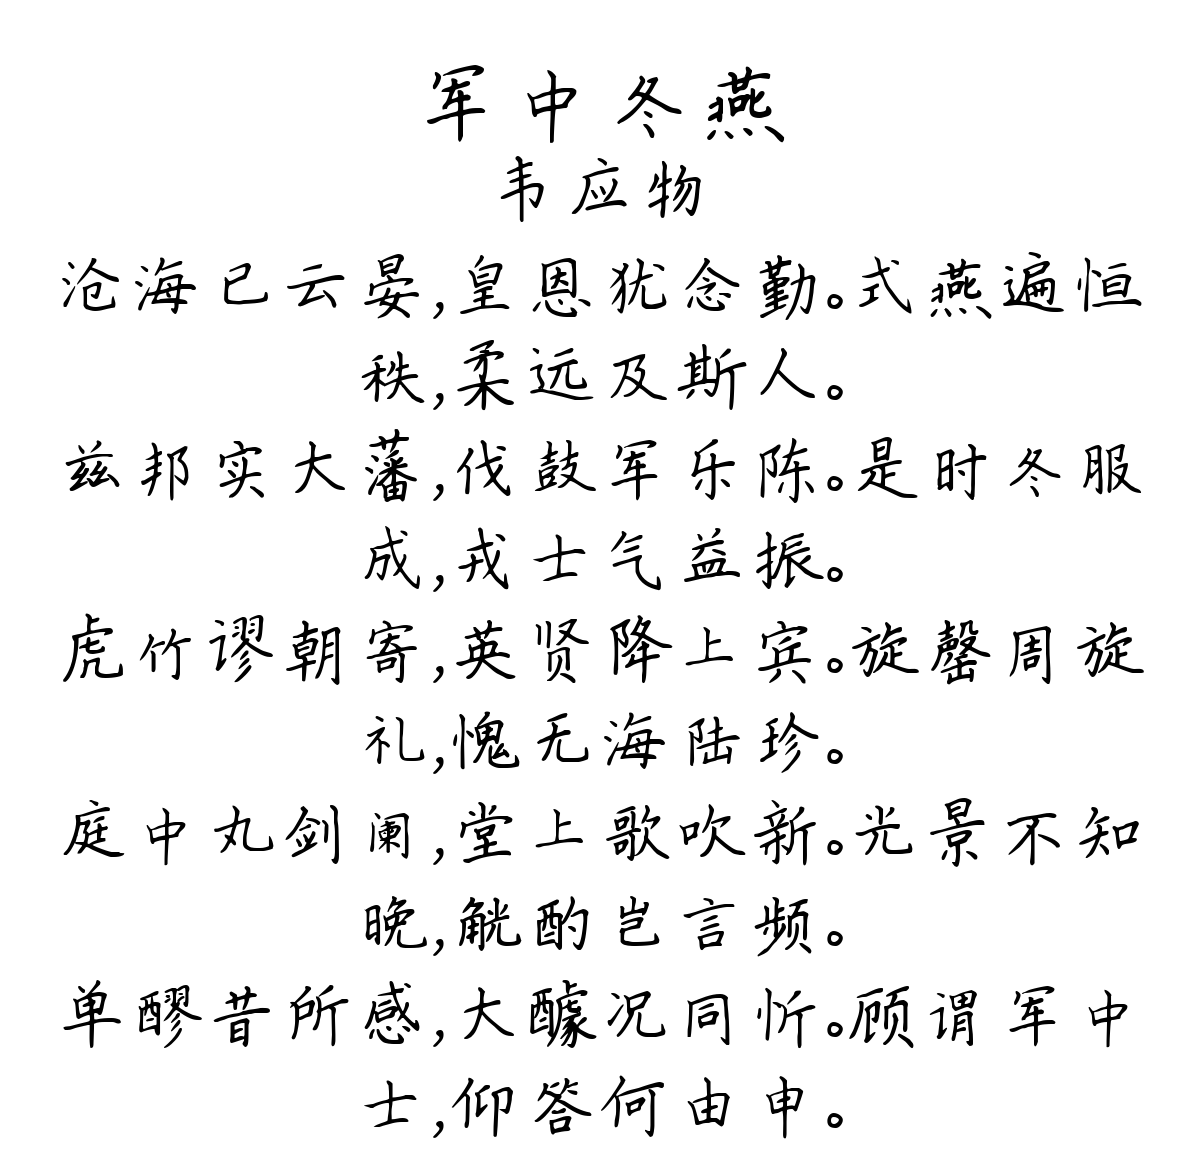 军中冬燕
韦应物
沧海已云晏,皇恩犹念勤。式燕遍恒
秩,柔远及斯人。
兹邦实大藩,伐鼓军乐陈。是时冬服
成,戎士气益振。
虎竹谬朝寄,英贤降上宾。旋罄周旋
礼,愧无海陆珍。
庭中丸剑阑,堂上歌吹新。光景不知
晚,觥酌岂言频。
单醪昔所感,大醵况同忻。顾谓军中
士,仰答何由申。